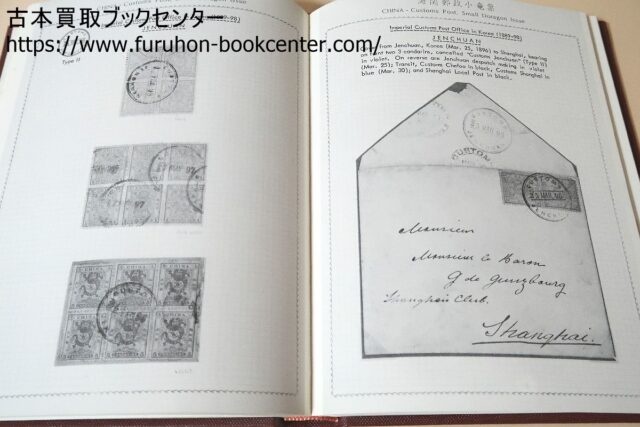 古本買取ブックセンター
https://www.furuhon-bookcenter.com/
JENCHUAN
Type II
CHINA - Customs Post, Small Dragon Issue
Imperial Customs Post Office in Korea
JENCHUAN
From Jenchuan, Korea (Mar. 25, 1896) to Shanghai, bearing
on front two 3 candarins, cancelled "Customs Jenchuan" (Type II)
in violet. On reverse are Jenchuan despatch making in violet
(Mar. 25); Transit, Customs Chefoo in black, Customs Shanghai in
blue (Mar. 30); and Shanghai Local Post in black.
CUSTOMS
Monsieur
Monsieur le Baron
G de Gunzbourg
Shanghai Club.
Shanghai.